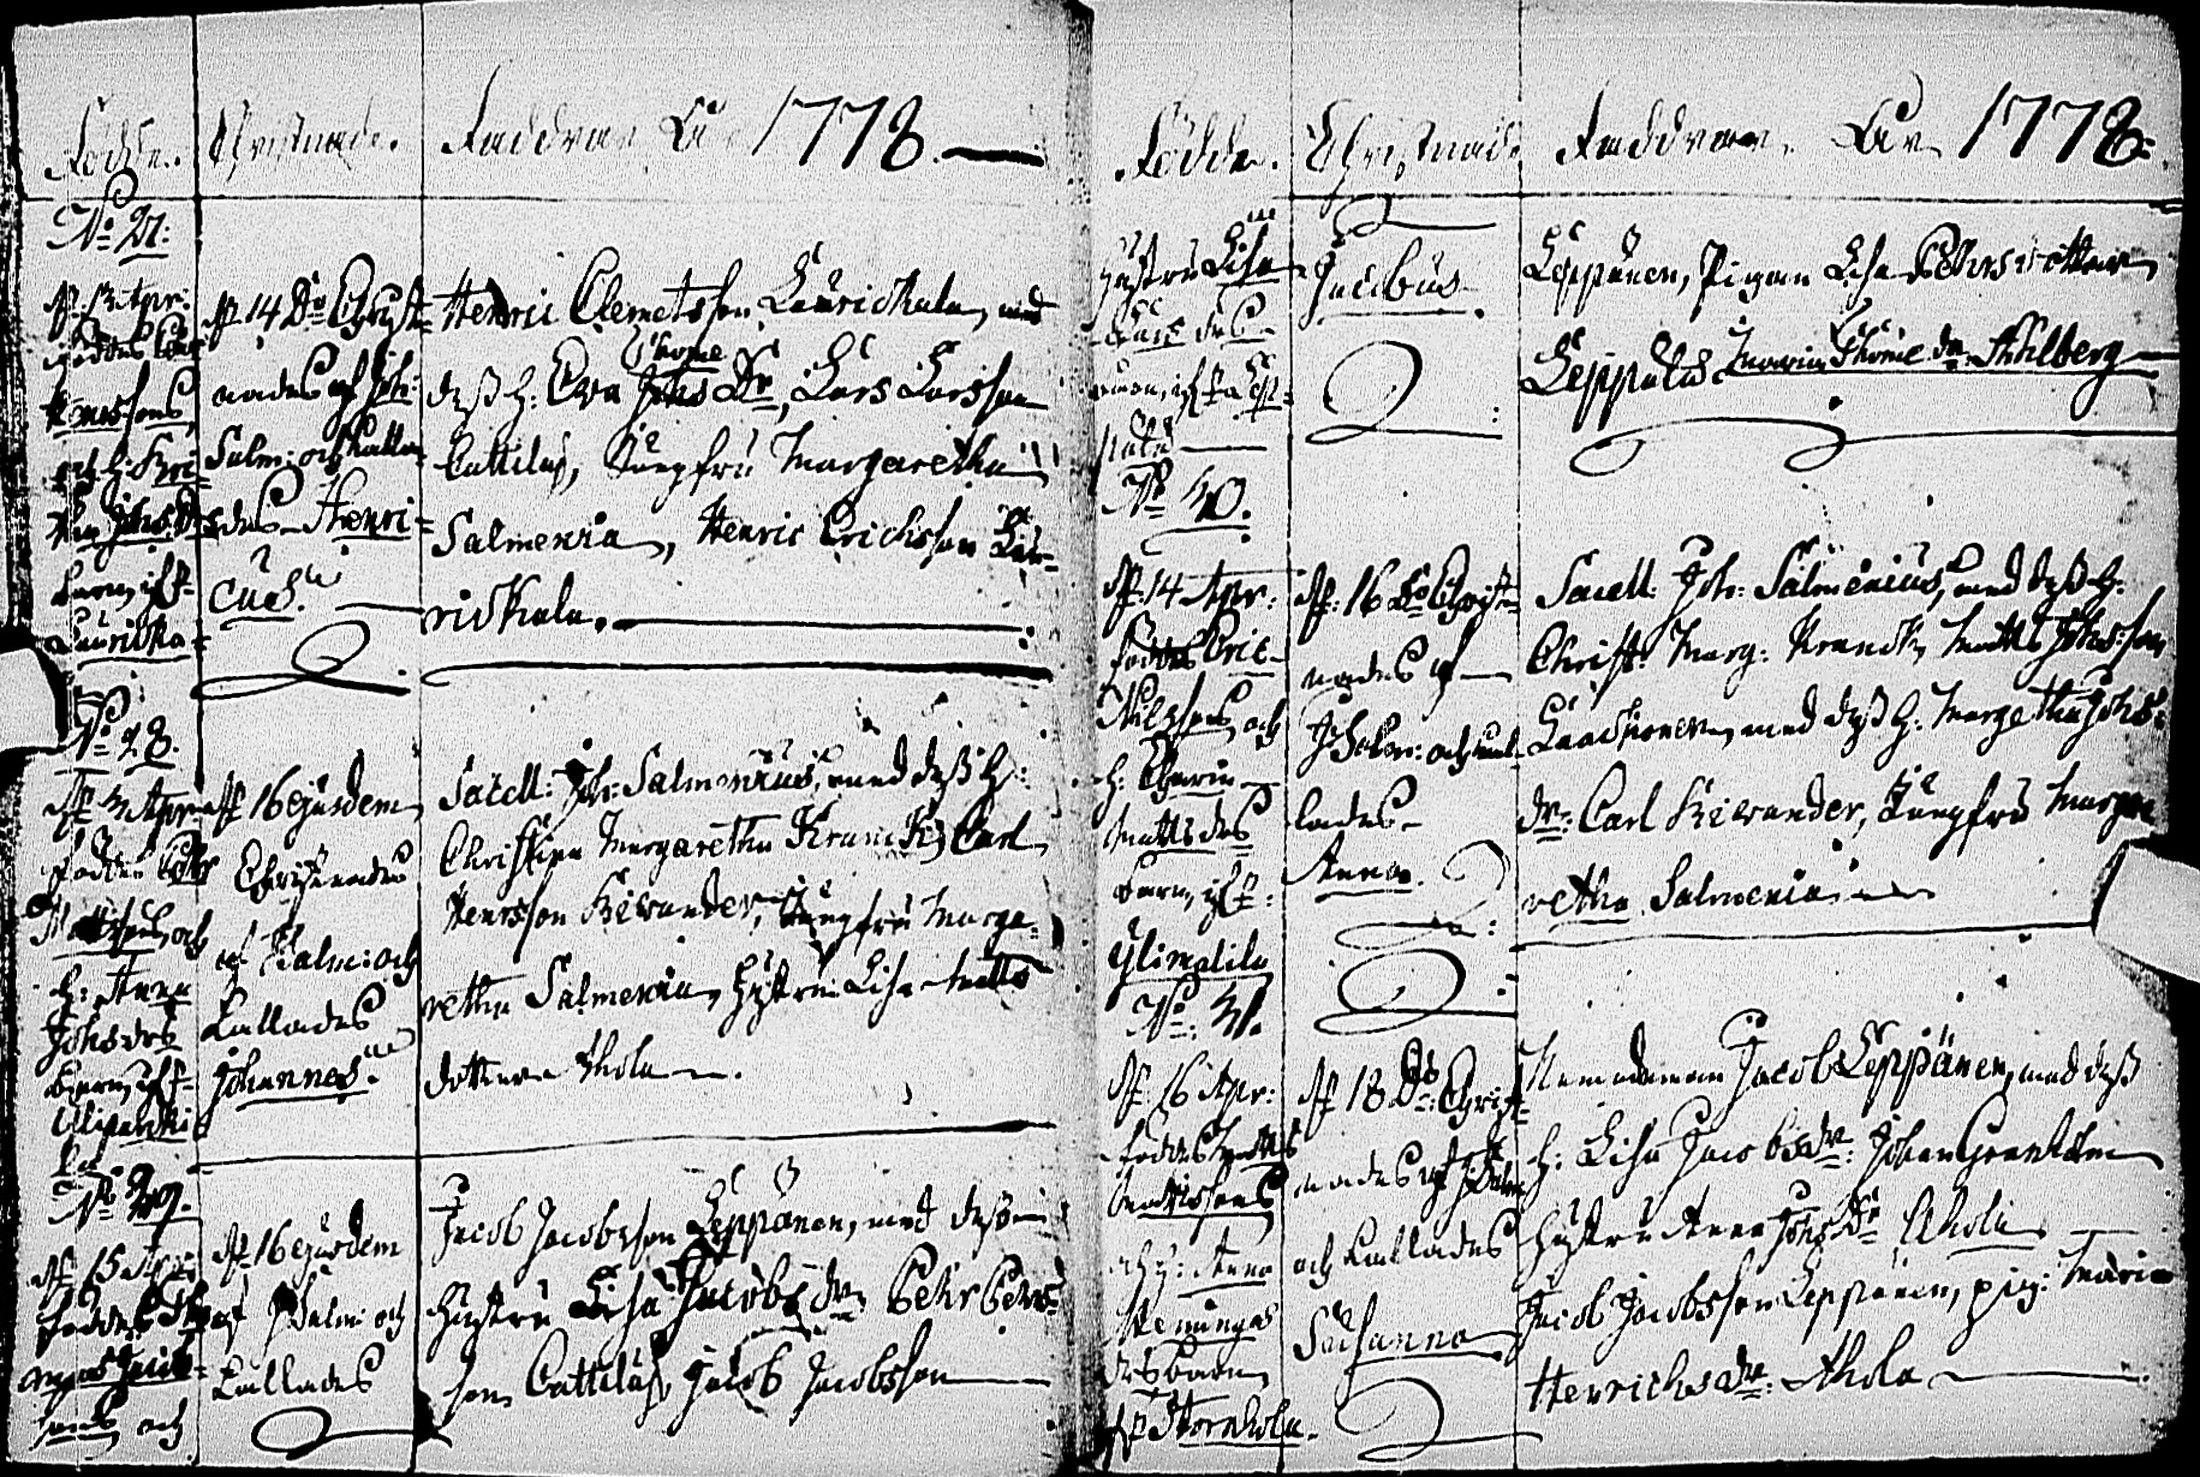 Födde. Christnade. Faddrar År 1778.
No 27:
d. 13 Apr:
föddes Lars
Henrssons
och h: Kri-
Johs dr
barn, ifr
Lauricka-
d. 14 Do Christ-
nades af Joh:
Salm: och kalla-
des Henri-
cus.
Henric Clemetsson Laurickala, med
dess h: Eva Thome Dr, Lars Larsson
Cattilus, Jungfru Margaretha
Salmenia, Henric Erichsson Lau-
rickala.
No 28.
d. Apr
föddes Pehr
Mattssons, och
h: Anna
Johsdrs
barn, ifr
d. 16 ejusdem
Christnades
af Salm: och
kallades
Johannes.
Sacell: Joh: Salmenius, med dess h:
Christina Margaretha Kranck, Carl
Henrsson Kiwander, Jungfru Marga-
retha Salmenia, hustru Lisa Matts
dotter Ahola.
No 29.
d. 15 Apr:
föddes Tho-
mas Jacob-
sons och
d. 16 ejusdem
af J Salm: och
kallades
Jacob Jacobsson Leppänen, med dess
hustru Lisa Jacobs dr, Pehr Pehrs-
son Cattilus, Jacob Jacobsson
Födde. Christnade Faddrar. År 1778:
hustru Lisa
Lars drs
barn, ifr Lep-
pälä
Jacobus.
Leppänen, Pigan Lisa Pehrs dotter
Leppälä. Maria Thome dr. Ahlberg
No 30.
d. 14 Apr:
föddes Eric
Nilssons, och
h: Carin
Matts drs
barn, ifr:
Ylimälilä
d. 16 Do Christ-
nades af
J Salm: och kal-
lades
Anna.
Sacell: Joh: Salmenius, med dess h:
Christ: Marg: Kranck, Matts Johsson
Laackonen, med dess h: Margetha Johs
dr: Carl Kiwander, Jungfru Marga-
retha Salmenia
No: 31.
d. 16 Apr:
föddes Matts
Mattssons
och h: Anna
Hemmingas
drs barn
ifr
d. 18 Do: Christ-
nades af J Salm
och kallades
Susanna
Nämndeman Jacob Leppänen, med dess
h: Lisa Jacobs dr: Johan Granholms
hustru Anna Johs Dr Ahola
Jacob Jacobsson Leppänen, pig: Maria
Henrichs dr. Ahola